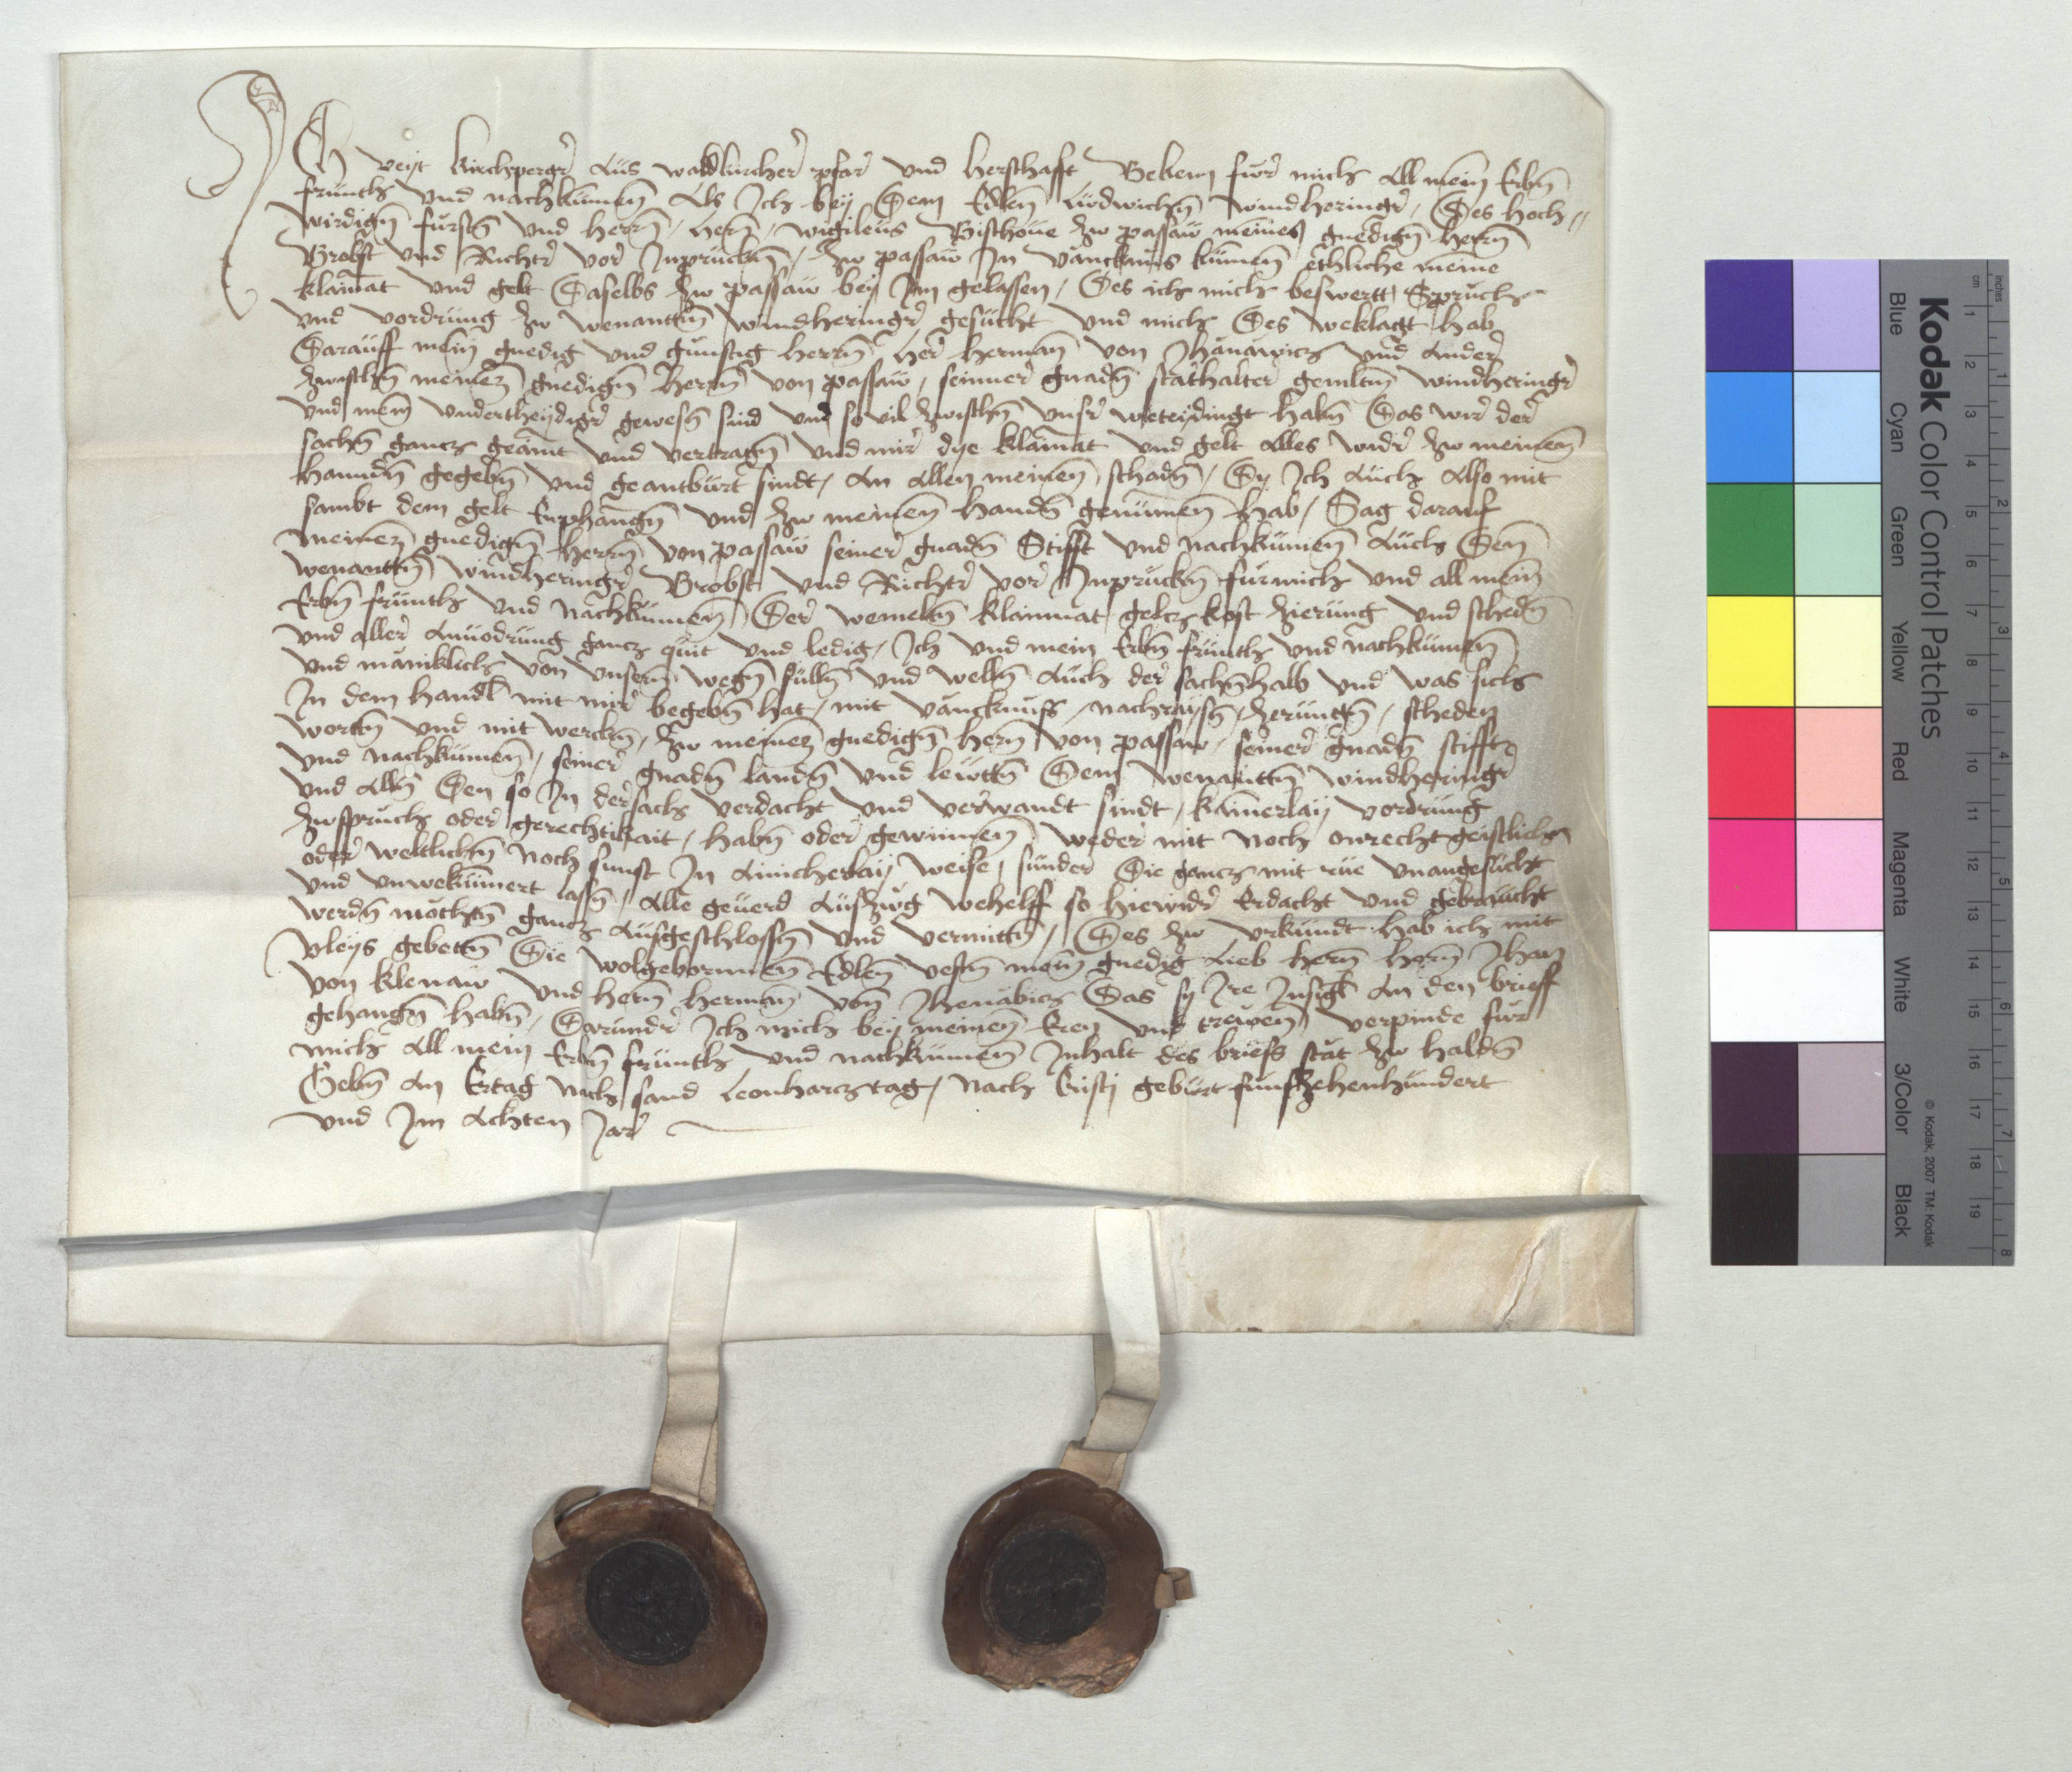 Ich veyt kirchperger aus waldkircher pfar und herschafft Beken fur mich all mein Erbn̄
frunth und nachkumen̄ Als Ich bey Dem Edlen Ludwichn̄ windheringer, Des hoch„
wirdign̄ furstn̄ und herrn̄, hern̄, wigileus Bischove zw passaw meines gnedign̄ herrn̄
Brobst und Richter vor Inpruckn̄, zw passaw In vancknus kumen̄ ethliche meine
klainat und gelt Daselbs zw passaw bey Im gelassen, Des ich mich beswertt, Spruch
und vordrung zw wenanttn̄ windheringer gesucht und mich Des weklagt hab
Darauff mein gnedig und gunstig herrn̄, her herman von Jhanawicz und ander
zwischn̄ meinem gnedign̄ herrn̄ von passaw, seinner gnadn̄ stathalter gemltm̄ windheringer
und mein undertheydiger gewesn̄ sind und so vil zwischn̄ unser weteydingt habn̄ Das wir der
sachn̄ gancz geaint und vertragn̄ und mir dye klainat und gelt alles wider zw meinen̄
hanndn̄ gegebn̄ und geantburt sindt, An allen meinen schadn̄, Dy Ich auch also mit
sambt dem gelt Enphangn̄ und zw meinen̄ handn̄ genumen̄ hab, Sag darauf
meinem gnedign̄ herrn̄ von passaw seiner gnadn̄ Stifft und nachkumen̄ auch Den
wenanttn̄ windheringer Brobst und Richter vor Inpruckn̄ fur mich und all mein
Erbn̄ frunth und nachkumen̄, Der wemeltn̄ klainnat gelcz kost zierung und schedn̄
und aller anvodrung gancz quit und ledig, Ich und mein Erbn̄ frunth und nachkumen̄
und maniklich von unsern̄ wegn̄ sulln̄ und welln̄ auch der sachn̄halb und was sich
In dem handl mit mir begebn̄ hat, mit vancknuss, nachraysn̄, zeruntgn̄, scheden
wortn̄ und mit werckn̄, zw meinem gnedign̄ hern̄ von passaw, seiner gnadn̄ stifft
und nachkumen̄, seiner gnadn̄ landn̄ und lewttn̄ Dem wenanttn̄ windheringer
und Alln̄ Den so In der sach verdacht und verwandt sindt, kainerlay vordrung
zwspruch oder gerechtikait, habn̄ oder gewinnen̄, weder mit noch onrecht geistlichn
oder weltlichn̄ noch sunst In ainicherlay weise, sunder Die gancz mit rue unangesucht
und unwekumert lasn̄, Alle geuerd auszwg wehelff so hiewider Erdacht und gebraucht
werdn̄ mochtn̄ gancz ausgeschlossn̄ und vermittn̄, Des zw urkundt hab ich mit
vleys gebettn̄ Die wolgebornnen̄ Edlen̄ vestn̄ mein gnedig Lieb hern̄ hern̄ Jhan
von klenaw und hern̄ herman̄ von Jhenabicz Das sy Ire Insigl An den brieff
gehangn̄ habn̄, Darunder Ich mich bey meinen̄ Eren und trewen̄ verpinde fur
mich all mein Erbn̄ frunth und nachkumen̄ Inhalt des briefs stat zw haldn̄
Gebn̄ An Ertag nach sand Leonharcz tag, Nach Cristi geburt funfzehenhundert
und Im Achten Jar
Kodak Color Control Patches
Blue Cyan Green Yellow Red Magenta White 3/Color Black
© Kodak, 2007 TM: Kodak
cm 1 2 3 4 5 6 7 8 9 10 11 12 13 14 15 16 17 18 19
inches 1 2 3 4 5 6 7 8